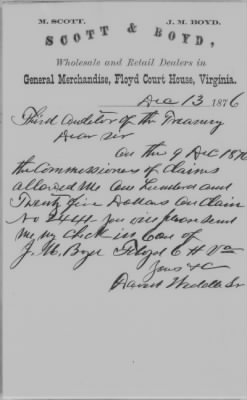 M. SCOTT. J. M. BOYD.
SCOTT & BOYD,
Wholesale and Retail Dealers in
General Merchandise, Floyd Court House, Virginia.
Dec 13 1876
Third Auditor of the Treasury
Dear Sir
On the 9 Dec 1876
the Commissioners of Claims
allowed me One hundred and
Twenty five Dollars on Claim
No 2444 you will please send
me my check in care of
J. M. Boyd Floyd C H Va
Yours &C
David Weddle Sr